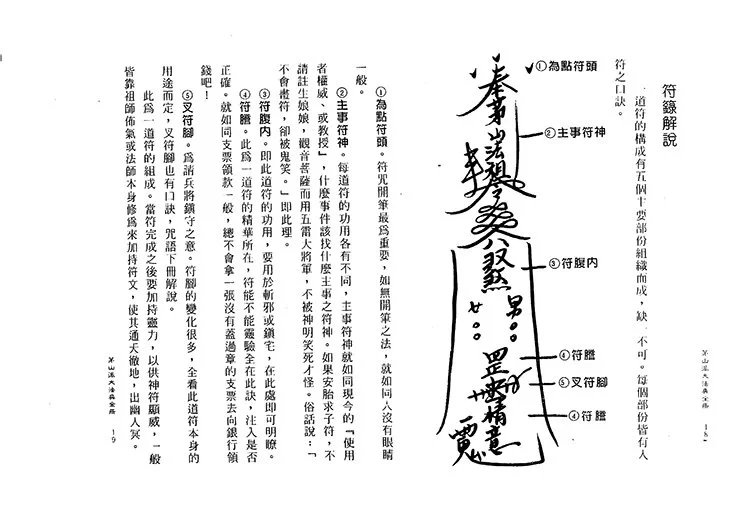 符籙解說
一道符的構成有五個主要部份組織而成，缺一不可。每個部份皆有入
符之口訣。
①為點符頭
②主事符神
③符腹內
④符膽
⑤叉符腳
④符膽
奉茅山法
男
女
罡
精意
茅山派大法
18
①為點符頭。符咒開筆最爲重要，如無開筆之法，就如同人沒有眼睛
一般。
②主事符神。每道符的功用各有不同，主事符神就如同現今的『使用
者權威、或教授』，什麼事件該找什麼主事之符神。如果安胎求子符，不
請註生娘娘，觀音菩薩而用五雷大將軍，不被神明笑死才怪。俗話說：「
不會畫符，卻被鬼笑。」即此理。
③符腹內。即此道符的功用，要用於斬邪或鎮宅，在此處即可明瞭。
④符膽。此爲一道符的精華所在，符能不能靈驗全在此訣，注入是否
正確。就如同支票領款一般，總不會拿一張沒有蓋過章的支票去向銀行領
錢吧！
⑤叉符腳。爲請兵將鎮守之意。符腳的變化很多，全看此道符本身的
用途而定，叉符腳也有口訣，咒語下冊解說。
此爲一道符的組成。當符完成之後要加持靈力，以供神符顯威，一般
皆靠祖師佈氣或法師本身修爲來加持符文，使其通天徹地，出幽入冥。
茅山派大法
19